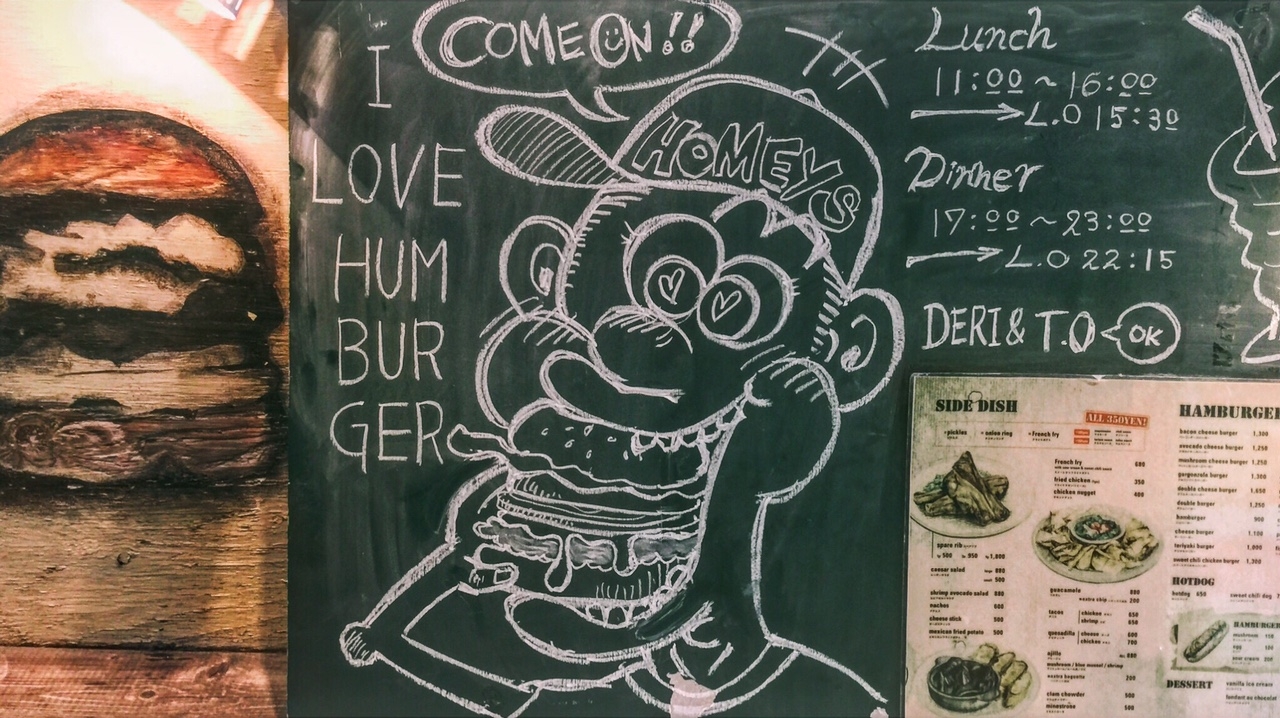 COME ON!!
I
LOVE
HUM
BUR
GER
HOMEYS
Lunch
11:00 ~ 16:00
L.O 15:30
Dinner
17:00 ~ 23:00
L.O 22:15
DERI & T.O OK
SIDE DISH
ALL 350YEN!
pickles onion ring French fry
French fry 600
fried chicken 350
chicken nugget 400
spare rib
500 950 1,800
caesar salad 880
500
shrimp avocado salad 880
nachos 600
cheese stick 500
mexican fried potato 500
guacamole 880
nextra chip 200
tacos chicken 650
shrimp 650
quesadilla cheese 600
chicken 700
ajillo 880
mushroom / blue mussel / shrimp
nextra baguette 200
clam chowder 500
minestrone 500
HAMBURGER
bacon cheese burger 1,300
avocado cheese burger 1,250
mushroom cheese burger 1,250
gorgonzola burger 1,300
double cheese burger 1,650
double burger 1,250
hamburger 900
cheese burger 1,100
teriyaki burger 1,000
sweet chili chicken burger 1,300
HOTDOG
hotdog 650 sweet chili dog
HAMBURGER
mushroom 150
egg 100
sour cream 200
DESSERT vanilla ice cream
fondant au chocolat